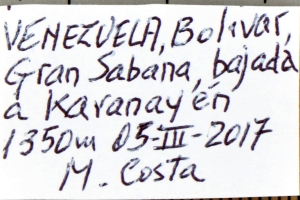 VENEZUELA, Bolívar,
Gran Sabana, bajada
a Kavanayén
1350m 05-III-2017
M. Costa